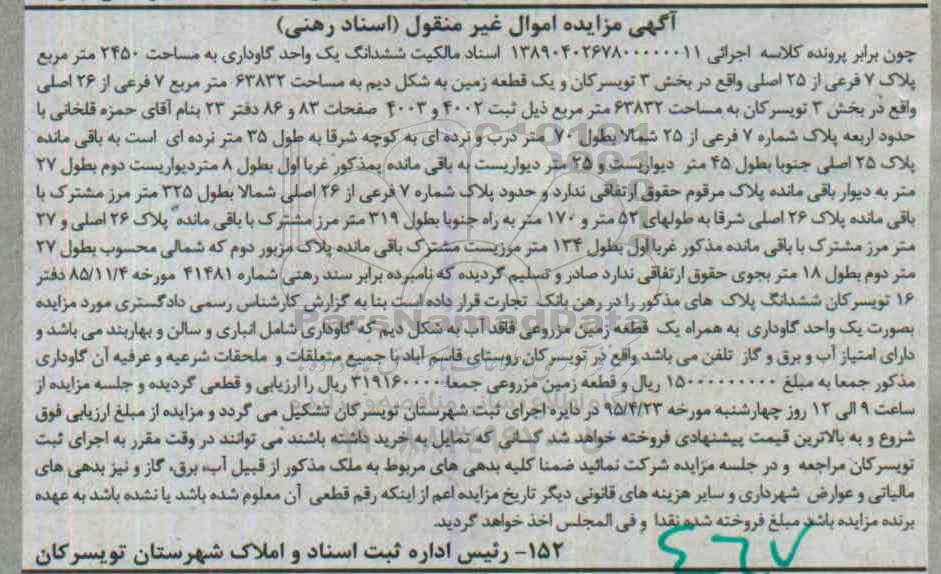 آگهی مزایده اموال غیر منقول (اسناد رهنی)
چون برابر پرونده کلاسه اجرائی ۱۳۸۹۰۴۰۲۶۷۸۰۰۰۰۰۰۱۱ اسناد مالکیت ششدانگ یک واحد گاوداری به مساحت ۲۴۵۰ متر مربع
پلاک ۷ فرعی از ۲۵ اصلی واقع در بخش ۳ تویسرکان و یک قطعه زمین به شکل دیم به مساحت ۶۳۸۳۲ متر مربع ۷ فرعی از ۲۶ اصلی
واقع در بخش ۳ تویسرکان به مساحت ۶۳۸۳۲ متر مربع ذیل ثبت ۴۰۰۲ و ۴۰۰۳ صفحات ۸۳ و ۸۶ دفتر ۲۳ بنام آقای حمزه قلخانی با
حدود اربعه پلاک شماره ۷ فرعی از ۲۵ شمالا بطول ۷۰ متر درب و نرده ای به کوچه شرقا به طول ۳۵ متر نرده ای است به باقی مانده
پلاک ۲۵ اصلی جنوبا بطول ۴۵ متر دیواریست و ۲۵ متر دیواریست به باقی مانده بمذکور غربا اول بطول ۸ متردیواریست دوم بطول ۲۷
متر به دیوار باقی مانده پلاک مرقوم حقوق ارتفاقی ندارد و حدود پلاک شماره ۷ فرعی از ۲۶ اصلی شمالا بطول ۳۲۵ متر مرز مشترک با
باقی مانده پلاک ۲۶ اصلی شرقا به طولهای ۵۲ متر و ۱۷۰ متر به راه جنوبا بطول ۳۱۹ متر مرز مشترک با باقی مانده پلاک ۲۶ اصلی و ۲۷
متر مرز مشترک با باقی مانده مذکور غربا اول بطول ۱۳۴ متر مرزیست مشترک باقی مانده پلاک مزبور دوم که شمالی محسوب بطول ۲۷
متر دوم بطول ۱۸ متر بجوی حقوق ارتفاقی ندارد صادر و تسلیم گردیده که نامبرده برابر سند رهنی شماره ۴۱۴۸۱ مورخه ۸۵/۱۱/۴ دفتر
۱۶ تویسرکان ششدانگ پلاک های مذکور را در رهن بانک تجارت قرار داده است بنا به گزارش کارشناس رسمی دادگستری مورد مزایده
بصورت یک واحد گاوداری به همراه یک قطعه زمین مزروعی فاقد آب به شکل دیم که گاوداری شامل انباری و سالن و بهاربند می باشد و
دارای امتیاز آب و برق و گاز تلفن می باشد واقع در تویسرکان روستای قاسم آباد با جمیع متعلقات و ملحقات شرعیه و عرفیه آن گاوداری
مذکور جمعا به مبلغ ۱۵۰۰۰۰۰۰۰۰۰ ریال و قطعه زمین مزروعی جمعا ۳۱۹۱۶۰۰۰۰ ریال را ارزیابی و قطعی گردیده و جلسه مزایده از
ساعت ۹ الی ۱۲ روز چهارشنبه مورخه ۹۵/۴/۲۳ در دایره اجرای ثبت شهرستان تویسرکان تشکیل می گردد و مزایده از مبلغ ارزیابی فوق
شروع و به بالاترین قیمت پیشنهادی فروخته خواهد شد کسانی که تمایل به خرید داشته باشند می توانند در وقت مقرر به اجرای ثبت
تویسرکان مراجعه و در جلسه مزایده شرکت نمائید ضمنا کلیه بدهی های مربوط به ملک مذکور از قبیل آب، برق، گاز و نیز بدهی های
مالیاتی و عوارض شهرداری و سایر هزینه های قانونی دیگر تاریخ مزایده اعم از اینکه رقم قطعی آن معلوم شده باشد یا نشده باشد به عهده
برنده مزایده باشد مبلغ فروخته شده نقدا و فی المجلس اخذ خواهد گردید.
۱۵۲- رئیس اداره ثبت اسناد و املاک شهرستان تویسرکان
ParsNamadData